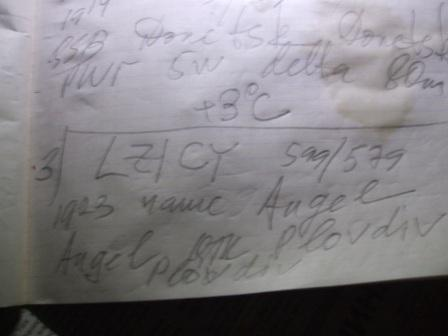 SSB Donetsk Donetsk
PWr 5w delta 80m
+3°C
3) LZ1CY 599/579
1923 name Angel
Angel QTH Plovdiv
Plovdiv